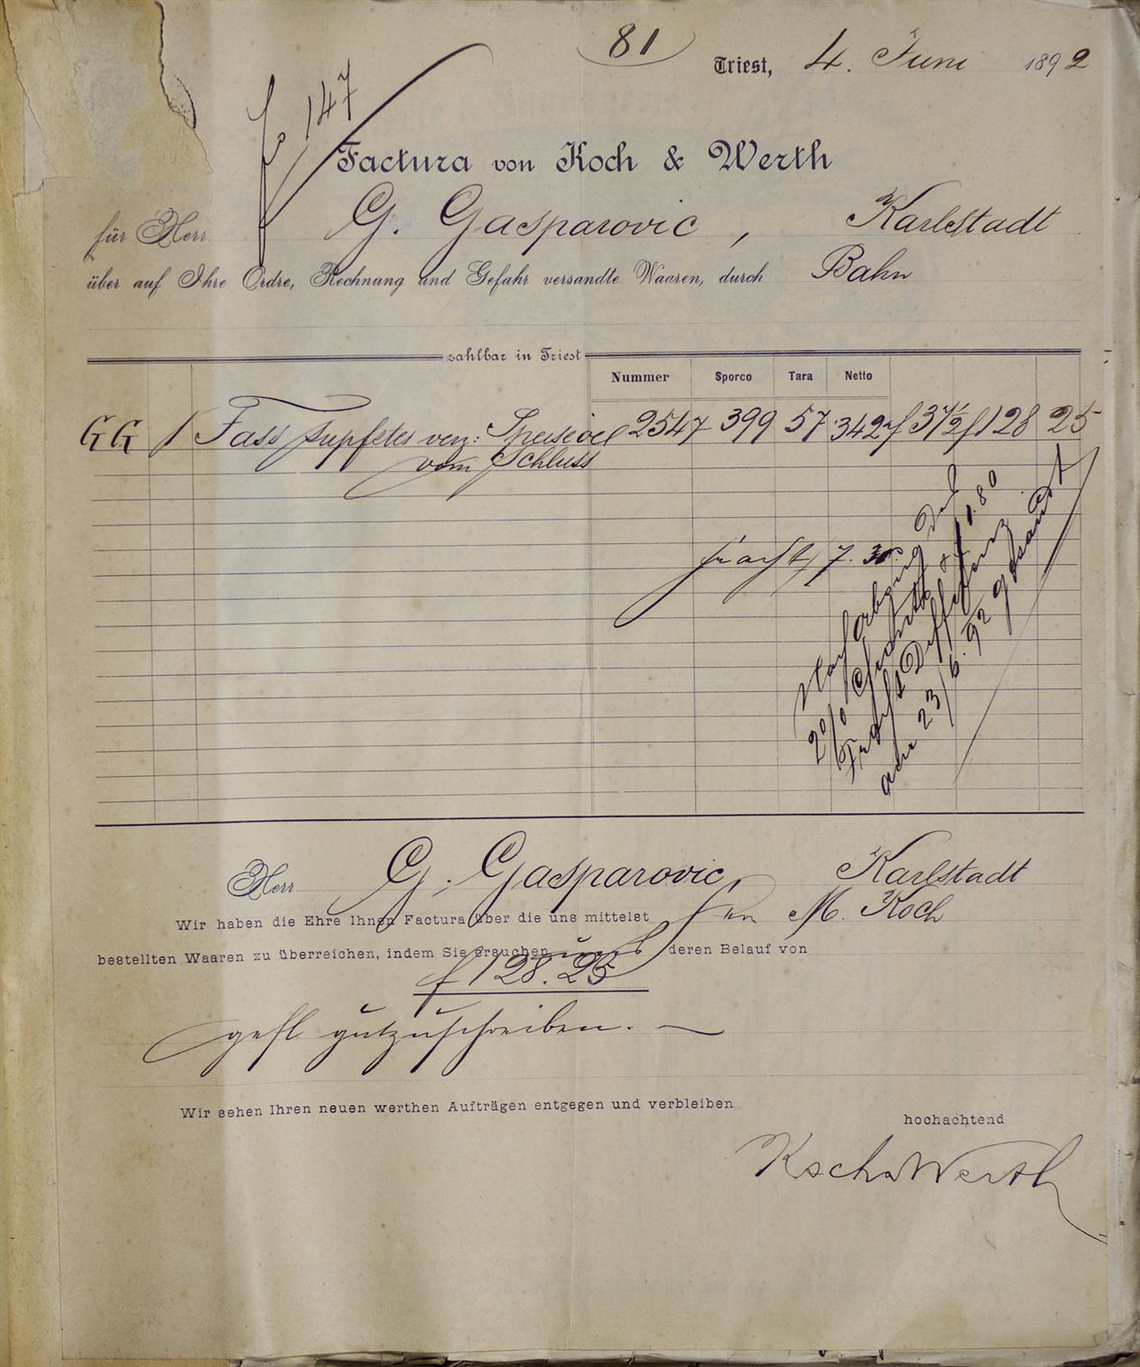 81
Triest, 4. Juni 1892
fo 147
Factura von Koch & Werth
für Herr G. Gasparovic, Karlstadt
über auf Ihre Ordre, Rechnung und Gefahr versandte Waaren, durch Bahn
zahlbar in Triest
Nummer Sporco Tara Netto
GG 1 Fass supfetes ven: Speiseoel 2547 399 57 342 f 37½ f 128 25
vom Schluss
fracht 7.30
2% f 1.80
Fracht Differenz
am 23/6.92 gesandt
Herr G. Gasparovic, Karlstadt
Wir haben die Ehre Ihnen Factura über die uns mittelst M. Koch
bestellten Waaren zu überreichen, indem Sie ersuchen uns deren Belauf von
f 128.25
gefl gutzuschreiben. —
Wir sehen Ihren neuen werthen Aufträgen entgegen und verbleiben
hochachtend
Koch & Werth